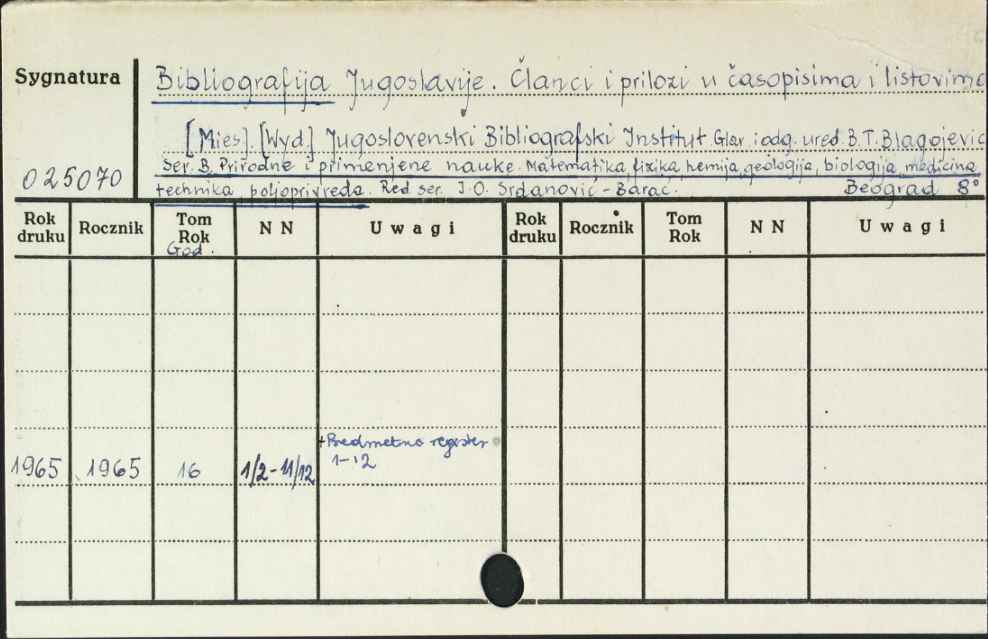 Sygnatura
Bibliografija Jugoslavije. Članci i prilozi u časopisima i listovima
[Mies]. [Wyd.] Jugoslovenski Bibliografski Institut Glav. i odg. ured. B.T. Blagojević
Ser. B. Prirodne i primenjene nauke. Matematika, fizika, hemija, geologija, biologija, medicina
025070
technika, poljoprivreda. Red. ser. J.O. Srdanović-Barać. Beograd 8°
Rok druku Rocznik Tom Rok N N Uwagi Rok druku Rocznik Tom Rok N N Uwagi
God.
+Predmetno register
1965 1965 16 1/2-11/12 1-12